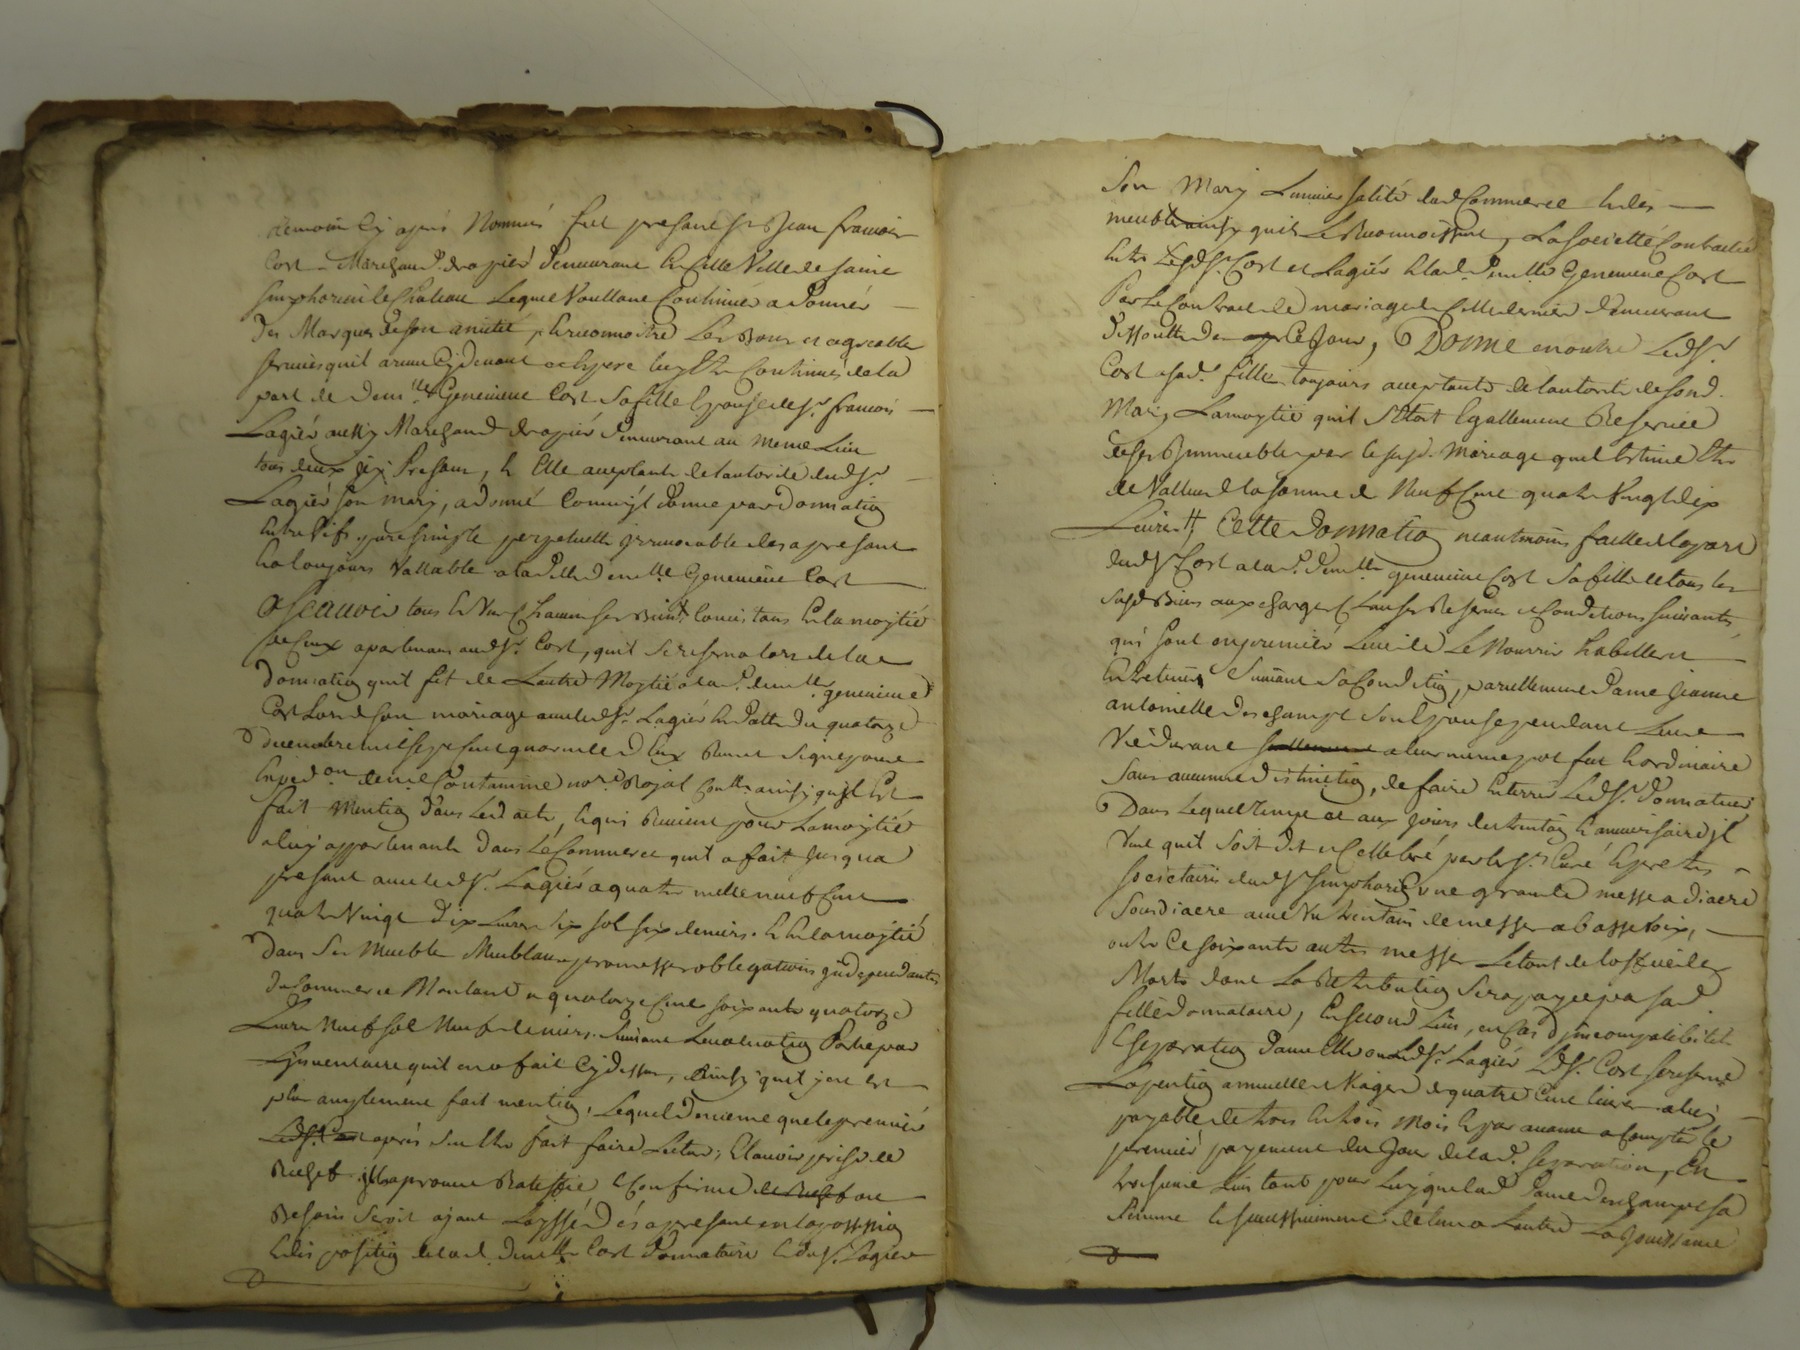 temoin Cy après Nommés fut present Sr Jean francois
Cost Marchand drapier demeurant En Cette Ville de saint
simphorien le Chateau Lequel Voullant Continuer a Donner
des Marques de son amitié, & reconnoitre Les Bons et agreable
services qu'il a receu Cy devant et Espere luy Etre Continués de la
part de demlle Genevieve Cost Sa fille Epouse de sr. francois
Lagiér aussy Marchand drapier demeurant au meme Lieu
tous deux icy Presans, & Elle acceptante de l'autorité dudsr.
Lagiér son mary, a donné Comme il donne par donnation
Entre Vifs, pure simple perpetuelle jrrevocable des a present
Et a toujours Vallable a ladte demlle Genevieve Cost
Scavoir tous Et Un Chacun ses Biens Concistans En la moytié
de Ceux apartenans audsr. Cost, qu'il se reserva lors de la
donnation qu'il fit de Lautre Moytié a lad. demlle genevieve
Cost Lors de son mariage avec ledsr. Lagiér En Datte du quatorze
decembre mil sept cent quarante deux Receu signé pour
Expedon de me Contamine nore Royal Conlle ainsy qu'jl Est
fait Mention Dans Led acte, Et qui Revient pour La moytié
a luy appartenante Dans Le Commerce qu'il a fait Jusqu'a
present avec ledsr. Lagiér a quatre mille neuf Cent
quatre Vingt dix Livres six sol six deniers. & En la moytié
Dans Ses Meubles Meublans promesses obligations jndependantes
du Commerce Montant a quatorze Cent soixante quatorze
Livre Neuf sol Neuf deniers. Suivant Levaluation Portée par
Ljnventaire qu'il en a fait Cy dessus, ainsy qu'il y en est
plus amplement fait mention, Lequel de meme que le premiér
Ledsr. Cost après s'en Etre fait faire Lecture, & l'avoir prise de
Rechef jl l'aprouve Ratiffie & Confirme de Rechef au
Besoin Seroit ajant Layssé des a present en la possession
& disposition de lad. demlle Cost Donnataire & dudsr. Lagiér
Son Mary Luniversalité dud Commerce & des
meubles ainsy qu'ils Le Reconnoissent, La Societté Contractée
Entre Lesdsr. Cost et Lagiér & lad. Demlle Genevieve Cost
Par Le Contract de mariage de Cette derniere demeurant
dissoutte des Ce Jour, Donne en outre Ledsr.
Cost a sad. fille toujours acceptante de l'autorité de sond.
Mary, La moytié qu'il S'Etoit Egallement Reservée
de ses Jmmeubles par le susd. Mariage quel Estime Etre
de Valleur de la somme de Neuf Cent quatre Vingt dix
Livres Cette Donnation neantmoins faitte de la part
dudsr Cost a lad. Demlle genevieve Cost Sa fille de tous les
susd Biens aux charges Clauses Reserves et Conditions suivantes
qui sont en premiér Lieu de Le Nourrir habiller et
Entretenir Suivant Sa Condition, pareillement Dame Jeanne
antoinette deschamps Son Epouse pendant Leur
Vie durant a leur meme pot feu & ordinaire
Sans aucunne distinction, de faire Enterrer Ledsr. Donnateur
Dans Lequel Temps et aux Jours de trentain & anniversaire jl
Veut qu'il Soit Dit et Cellebré par les srs Curé & pretres
societaires dudsr simphorien une grande messe a diacre
Sousdiacre avec Un trentain de messes a basse Voix,
outre Ce soixante autres messes Le tout de loffice des
Morts dont La Retribution Sera payée par sad.
fille donnataire, En second Lieu, en Cas d'jncompatibilité
& separation d'avec Elle ou Ledsr. Lagiér Ledsr. Cost se reserve
La pention annuelle & Viagere de quatre Cent livres a luy
payable de trois En trois Mois & par avance a Compter le
premiér payement du Jour de lad. separation, En
troisieme Lieu tant pour Luy que lad Dame deschamps sa
femme & successivement de l'un a Lautre La Jouissance